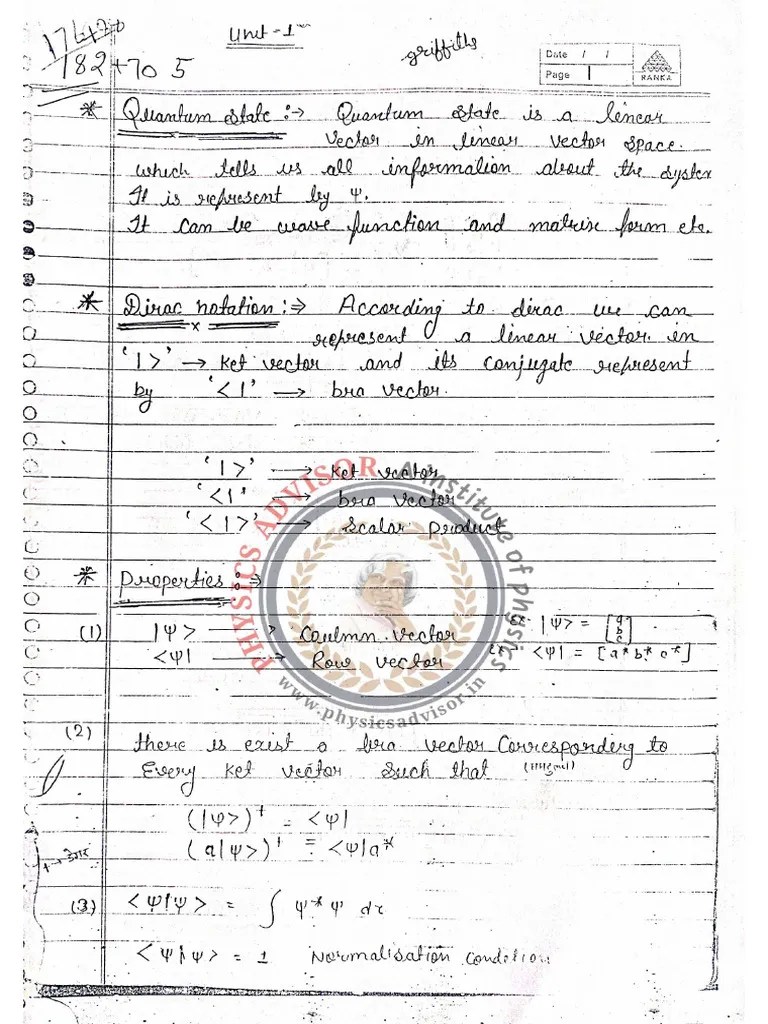 Unit - 1
griffiths
182+70 5
Date / /
Page 1
RANKA
* Quantum state :→ Quantum state is a linear
vector in linear vector space.
which tells us all information about the system
It is represent by Ψ.
It can be wave function and matrix form etc.
* Dirac notation :⇒ According to dirac we can
represent a linear vector in
'| >' → Ket vector and its conjugate represent
by '< |' → bra vector.
'| >' → Ket vector
'< |' → bra vector
'< | >' → Scalar product
* Properties :⇒
(1) |Ψ> → Coulmn vector ex. |Ψ> = [a b c]
<Ψ| → Row vector ex. <Ψ| = [a* b* c*]
PHYSICS ADVISOR An institute of physics
www.physicsadvisor.in
(2) there is exist a bra vector Corresponding to
Every Ket vector such that
(|Ψ>)† = <Ψ|
(a|Ψ>)† = <Ψ|a*
(3) <Ψ|Ψ> = ∫ Ψ* Ψ dτ
<Ψ|Ψ> = 1 Normalisation Condition